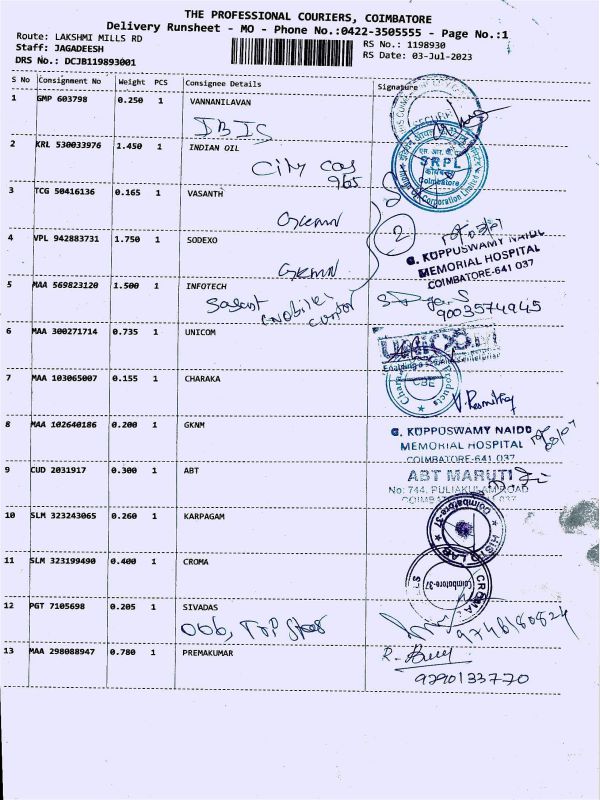 THE PROFESSIONAL COURIERS, COIMBATORE
Delivery Runsheet - MO - Phone No.:0422-3505555 - Page No.:1
Route: LAKSHMI MILLS RD
RS No.: 1198930
Staff: JAGADEESH
RS Date: 03-Jul-2023
DRS No.: DCJB119893001
S No Consignment No Weight PCS Consignee Details Signature
1 GMP 603798 0.250 1 VANNANILAVAN
IBIS
SECURE
2 KRL 530033976 1.450 1 INDIAN OIL
City Gas
965
SRPL
Coimbatore
Corporation Limited
3 TCG 50416136 0.165 1 VASANTH
GKMN
2
4 VPL 942883731 1.750 1 SODEXO
GKMN
G. KUPPUSWAMY NAIDU
MEMORIAL HOSPITAL
COIMBATORE-641 037
5 MAA 569823120 1.500 1 INFOTECH
9003574945
6 MAA 300271714 0.735 1 UNICOM
UNICOM
7 MAA 103065007 0.155 1 CHARAKA
CBE
Products
8 MAA 102640186 0.200 1 GKNM
G. KUPPUSWAMY NAIDU
MEMORIAL HOSPITAL
COIMBATORE-641 037
9 CUD 2031917 0.300 1 ABT
ABT MARUTI
No: 744, PULIAKULAM ROAD
10 SLM 323243065 0.260 1 KARPAGAM
Coimbatore-37
HISTO LAB
11 SLM 323199490 0.400 1 CROMA
Coimbatore-37
CROMA
12 PGT 7105698 0.205 1 SIVADAS
13 MAA 298088947 0.780 1 PREMAKUMAR
9290133770